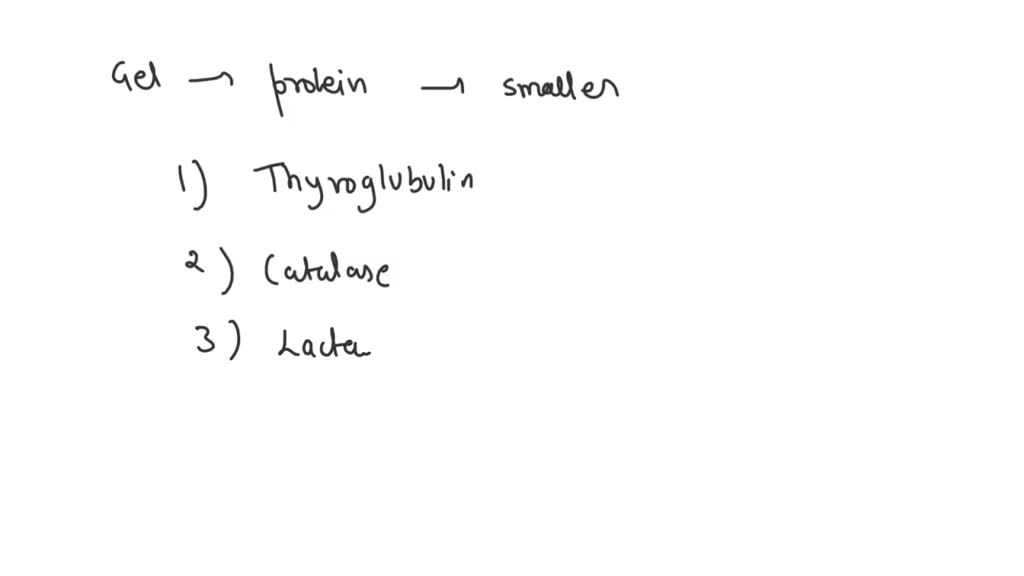 Gel → protein → smaller
1) Thyroglubulin
2) Catalase
3) Lacta